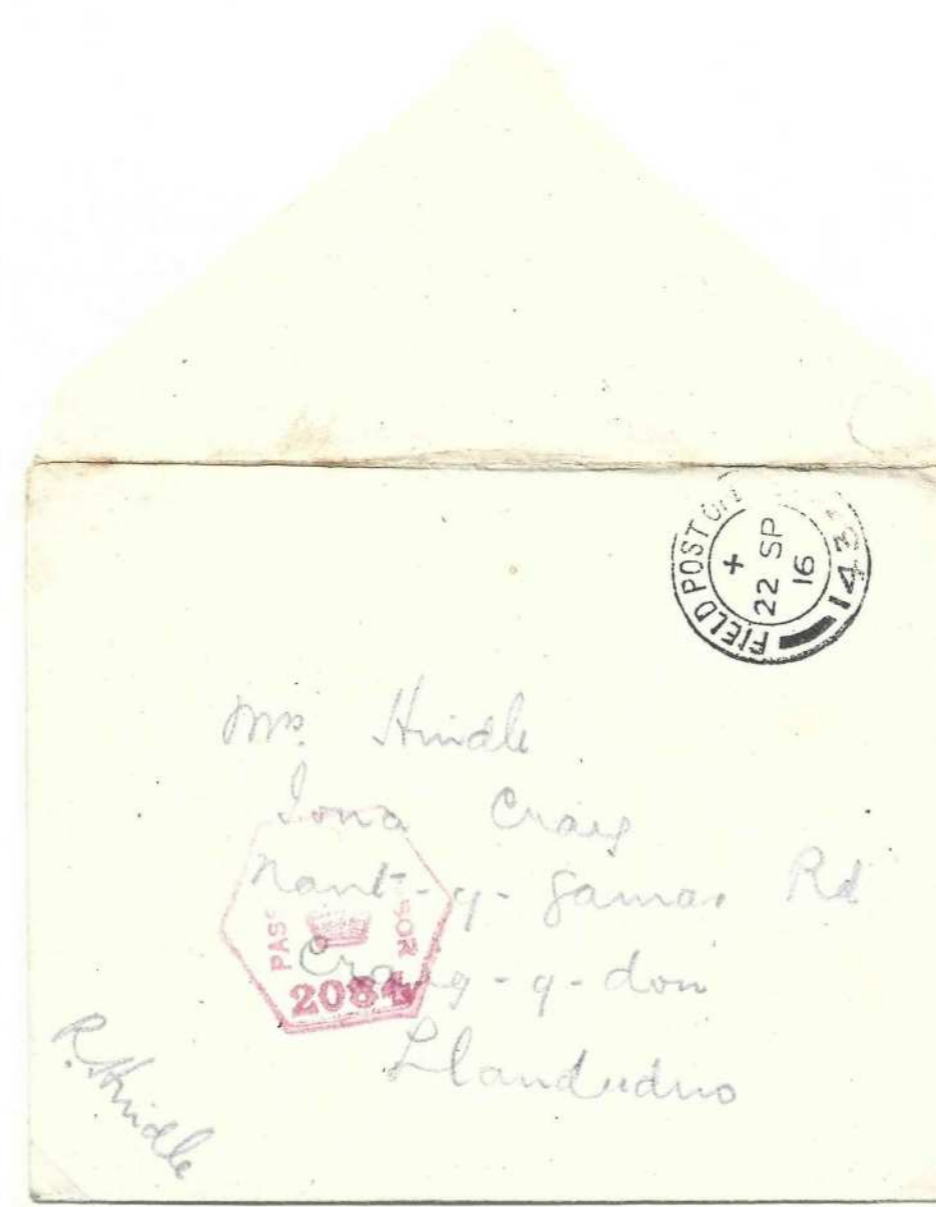 FIELD POST OF
+
22 SP
16
143
Mrs. Hindle
Iona Craig
Nant-y-Gamar Rd
Craig-y-don
Llandudno
PAS SOR
2084
R. Hindle